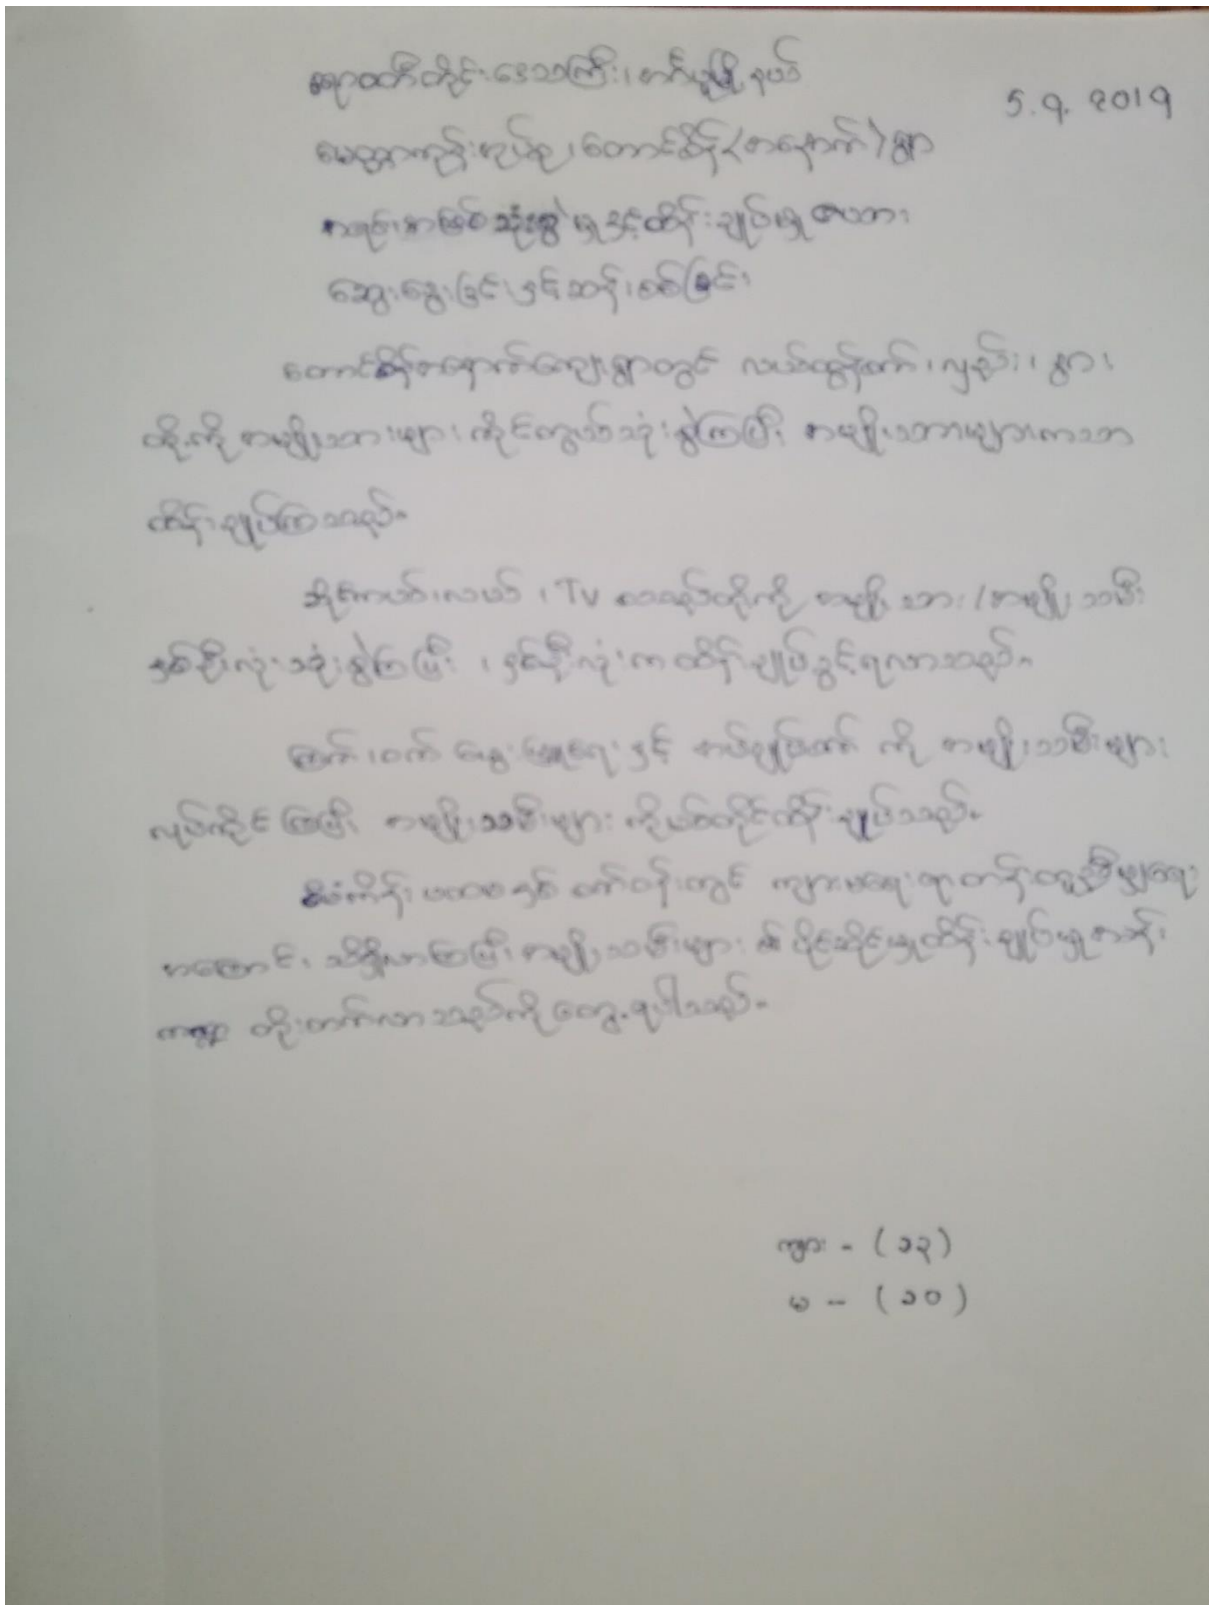 ဧရာဝတီတိုင်းဒေသကြီး၊ မြို့နယ်
5.9.2019
အုပ်စု၊ တောင်စိန် (အနောက်) ရွာ
အရင်းအမြစ်သုံးစွဲမှုနှင့်ထိန်းချုပ်မှုအား
ဆွေးနွေးခြင်းနှင့်ဆန်းစစ်ခြင်း
တောင်စိန်အနောက်ကျေးရွာတွင် လယ်ထွန်စက်၊ လှည်း၊ နွား
တို့ကို အမျိုးသားများ ကိုင်တွယ်သုံးစွဲကြပြီး အမျိုးသားများကသာ
ထိန်းချုပ်ကြသည်။
ဆိုင်ကယ်၊ လယ်၊ TV စသည်တို့ကို အမျိုးသား/အမျိုးသမီး
နှစ်ဦးလုံးသုံးစွဲကြပြီး၊ နှစ်ဦးလုံးကထိန်းချုပ်ခွင့်ရလာသည်။
ကြက်၊ ဝက် မွေးမြူရေးနှင့် အပ်ချုပ်စက် ကို အမျိုးသမီးများ
လုပ်ကိုင်ကြပြီး အမျိုးသမီးများ ကိုယ်တိုင်ထိန်းချုပ်သည်။
စီမံကိန်း ပထမနှစ် ကျားမရေးရာတန်းတူညီမျှရေး
အကြောင်း သိရှိလာကြပြီး အမျိုးသမီးများ ပိုင်ဆိုင်မှုထိန်းချုပ်မှုအခန်း
ကဏ္ဍ တိုးတက်လာသည်ကိုတွေ့ရပါသည်။
ကျား - (၁၃)
မ - (၁၀)